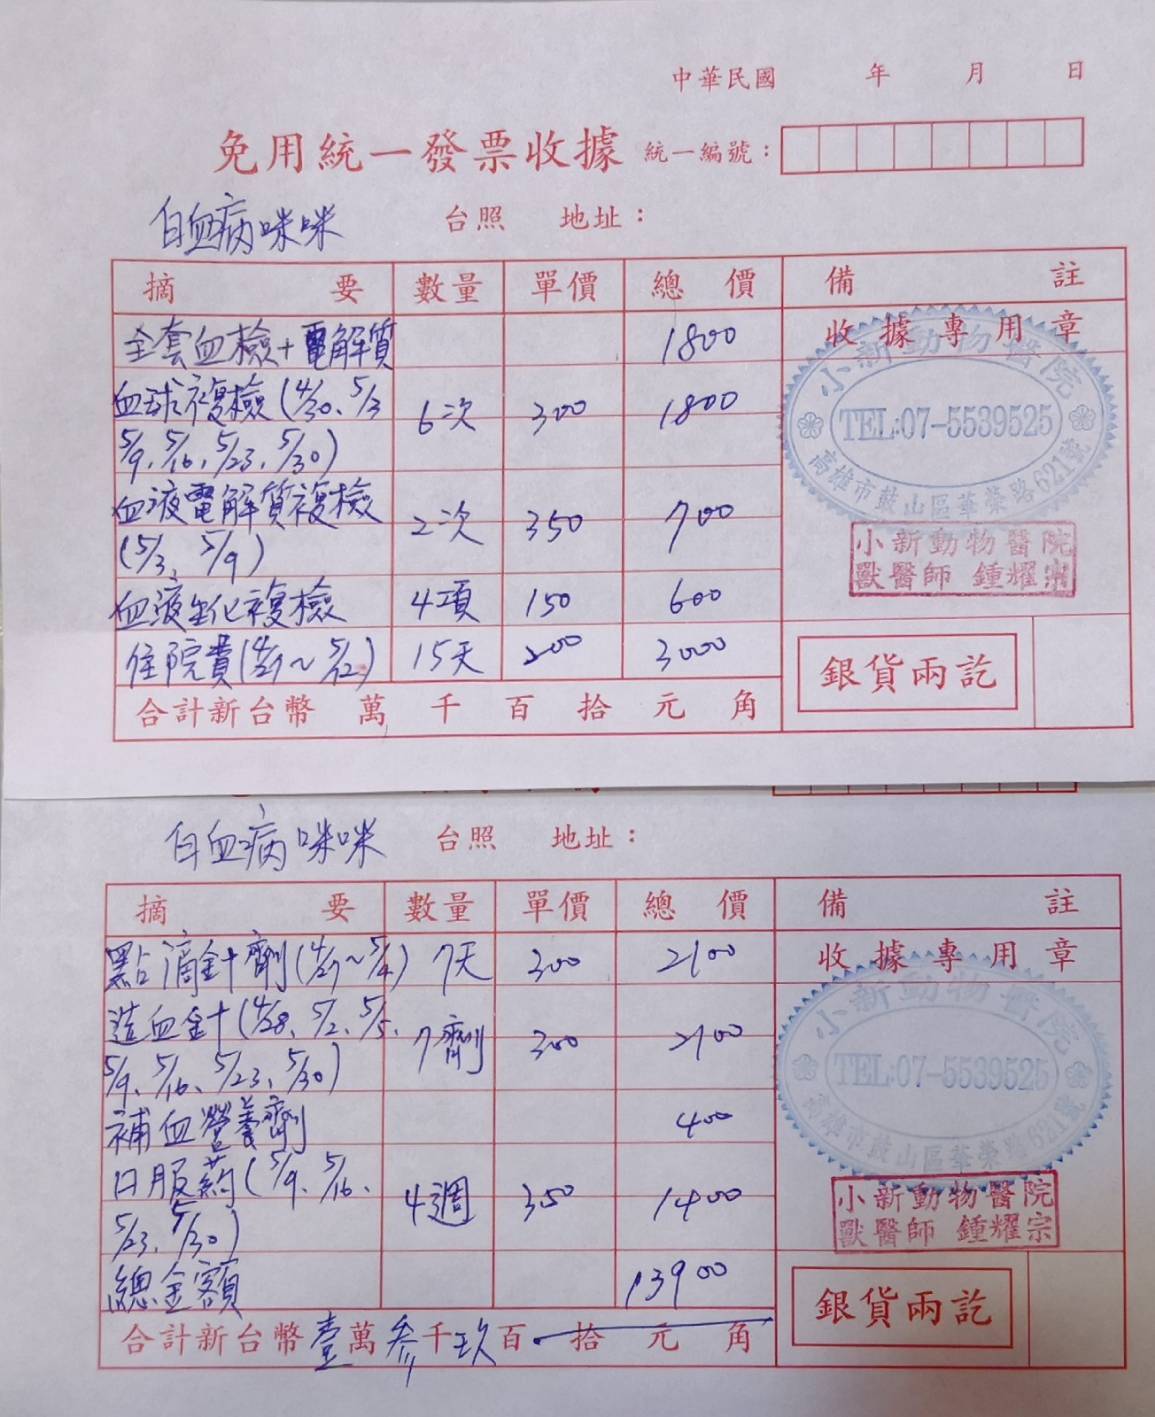 中華民國 年 月 日
免用統一發票收據 統一編號：
白血病咪咪 台照 地址：
摘要 數量 單價 總價 備註
全套血檢+電解質 1800 收據專用章
血球複檢(4/30、5/3
5/9、5/16、5/23、5/30) 6次 300 1800
血液電解質複檢
(5/3、5/9) 2次 350 700
血液生化複檢 4項 150 600
住院費(4/27~5/12) 15天 200 3000
合計新台幣 萬 千 百 拾 元 角
小新動物醫院
TEL:07-5539525
高雄市鼓山區華榮路621號
小新動物醫院
獸醫師 鍾耀宗
銀貨兩訖
白血病咪咪 台照 地址：
摘要 數量 單價 總價 備註
點滴針劑(4/27~5/4) 7天 300 2100 收據專用章
造血針(4/28、5/2、5/5、
5/9、5/16、5/23、5/30) 7劑 300 2100
補血營養劑 400
口服葯(5/9、5/16、
5/23、5/30) 4週 350 1400
總金額 13900
合計新台幣壹萬參千玖百拾元角
小新動物醫院
TEL:07-5539525
高雄市鼓山區華榮路621號
小新動物醫院
獸醫師 鍾耀宗
銀貨兩訖